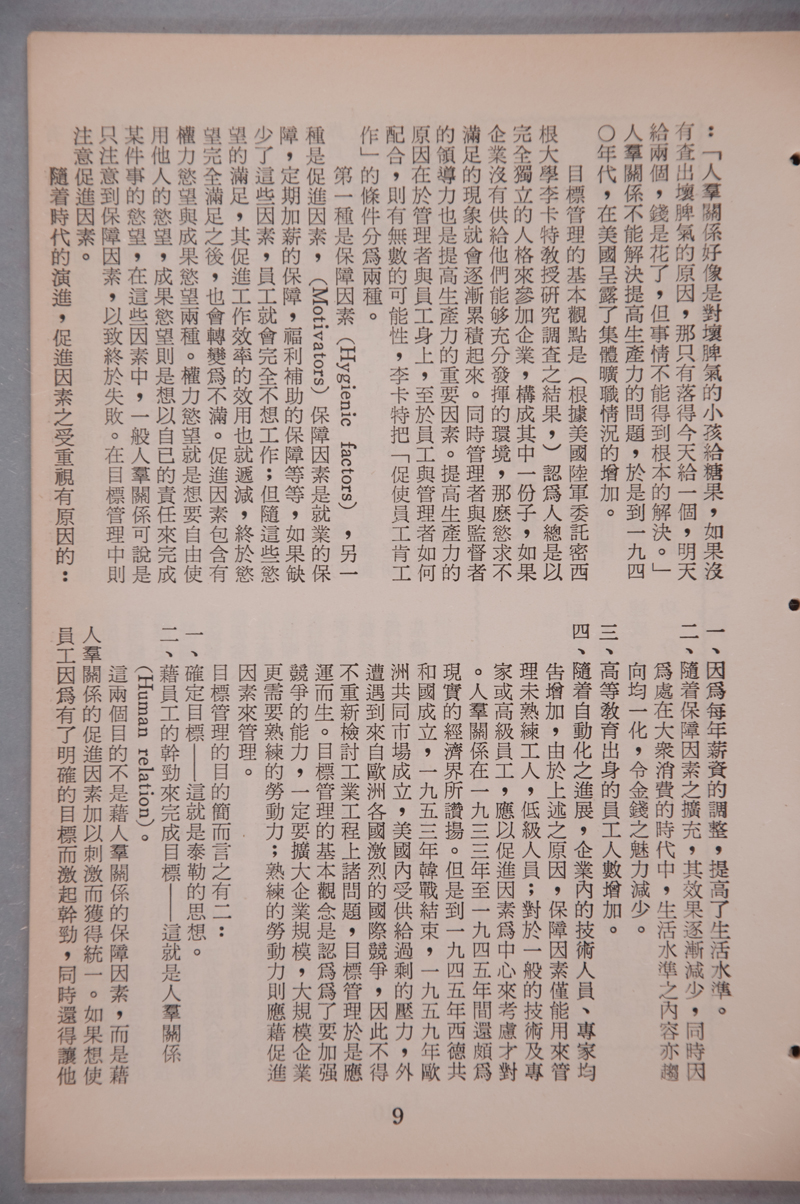 ：「人羣關係好像是對壞脾氣的小孩給糖果，如果沒
有查出壞脾氣的原因，那只有落得今天給一個，明天
給兩個，錢是花了，但事情不能得到根本的解決。」
人羣關係不能解決提高生產力的問題，於是到一九四
〇年代，在美國呈露了集體曠職情況的增加。
目標管理的基本觀點是（根據美國陸軍委託密西
根大學李卡特教授研究調查之結果，）認爲人總是以
完全獨立的人格來參加企業，構成其中一份子，如果
企業沒有供給他們能够充分發揮的環境，那麽慾求不
滿足的現象就會逐漸累積起來。同時管理者與監督者
的領導力也是提高生產力的重要因素。提高生產力的
原因在於管理者與員工身上，至於員工與管理者如何
配合，則有無數的可能性，李卡特把「促使員工肯工
作」的條件分爲兩種。
第一種是保障因素（Hygienic factors），另一
種是促進因素，（Motivators）保障因素是就業的保
障，定期加薪的保障，福利補助的保障等等，如果缺
少了這些因素，員工就會完全不想工作；但隨這些慾
望的滿足，其促進工作效率的效用也就遞減，終於慾
望完全滿足之後，也會轉變爲不滿。促進因素包含有
權力慾望與成果慾望兩種。權力慾望就是想要自由使
用他人的慾望，成果慾望則是想以自已的責任來完成
某件事的慾望，在這些因素中，一般人羣關係可說是
只注意到保障因素，以致終於失敗。在目標管理中則
注意促進因素。
隨着時代的演進，促進因素之受重視有原因的：
一、因爲每年薪資的調整，提高了生活水準。
二、隨着保障因素之擴充，其效果逐漸減少，同時因
爲處在大衆消費的時代中，生活水準之內容亦趨
向均一化，令金錢之魅力減少。
三、高等教育出身的員工人數增加。
四、隨着自動化之進展，企業內的技術人員、專家均
告增加，由於上述之原因，保障因素僅能用來管
理未熟練工人，低級人員；對於一般的技術及專
家或高級員工，應以促進因素爲中心來考慮才對
。人羣關係在一九三三年至一九四五年間還頗爲
現實的經濟界所讚揚。但是到一九四五年西德共
和國成立，一九五三年韓戰結束，一九五九年歐
洲共同市場成立，美國內受供給過剩的壓力，外
遭遇到來自歐洲各國激烈的國際競爭，因此不得
不重新檢討工業工程上諸問題，目標管理於是應
運而生。目標管理的基本觀念是認爲爲了要加强
競爭的能力，一定要擴大企業規模，大規模企業
更需要熟練的勞動力；熟練的勞動力則應藉促進
因素來管理。
目標管理的目的簡而言之有二：
一、確定目標——這就是泰勒的思想。
二、藉員工的幹勁來完成目標——這就是人羣關係
（Human relation）。
這兩個目的不是藉人羣關係的保障因素，而是藉
人羣關係的促進因素加以刺激而獲得統一。如果想使
員工因爲有了明確的目標而激起幹勁，同時還得讓他
9